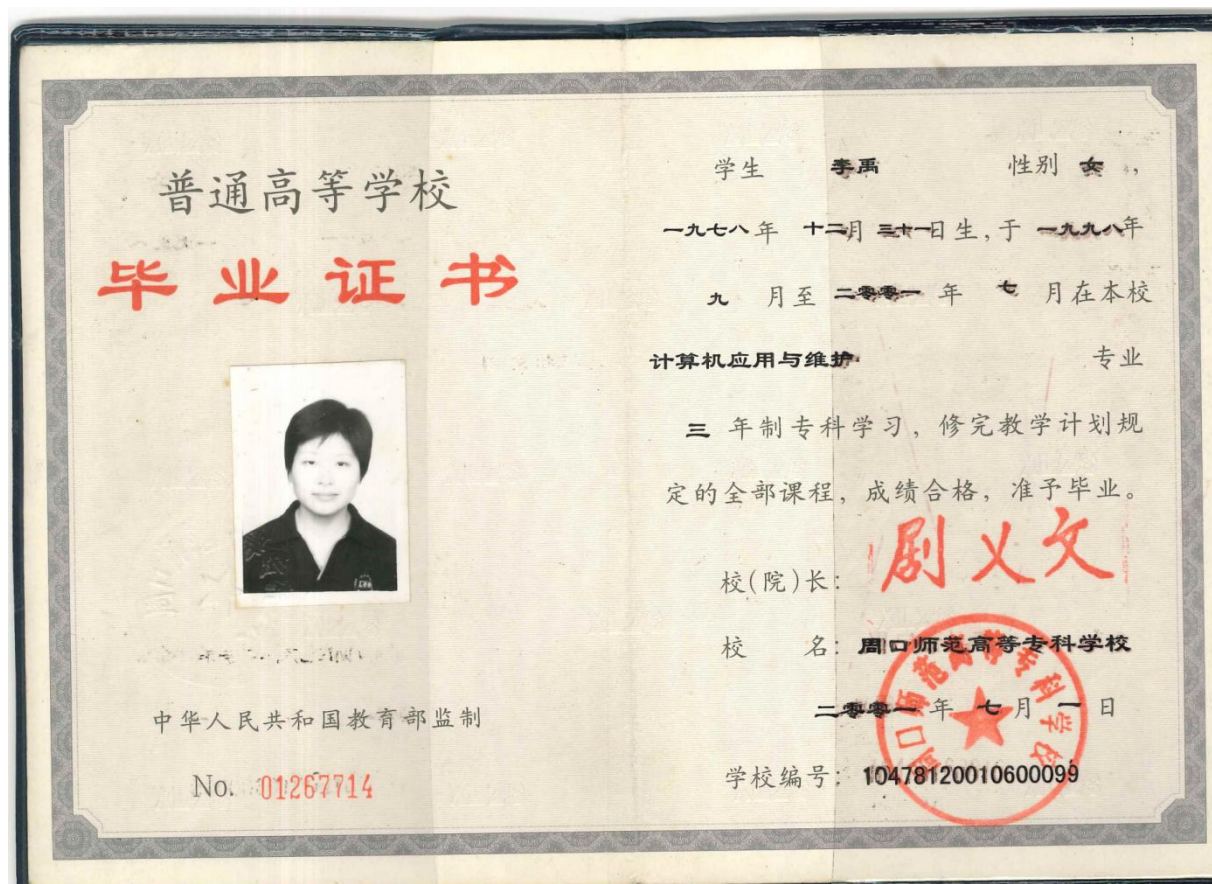 普通高等学校
毕业证书
中华人民共和国教育部监制
No. 01267714
学生 李禹 性别 女,
一九七八年 十二月 三十一日生,于 一九九八年
九 月至 二零零一 年 七 月在本校
计算机应用与维护 专业
三 年制专科学习，修完教学计划规
定的全部课程，成绩合格，准予毕业。
校(院)长: 剧乂文
校 名: 周口师范高等专科学校
二零零一 年 七 月 一 日
学校编号: 10478120010600099
周口师范高等专科学校